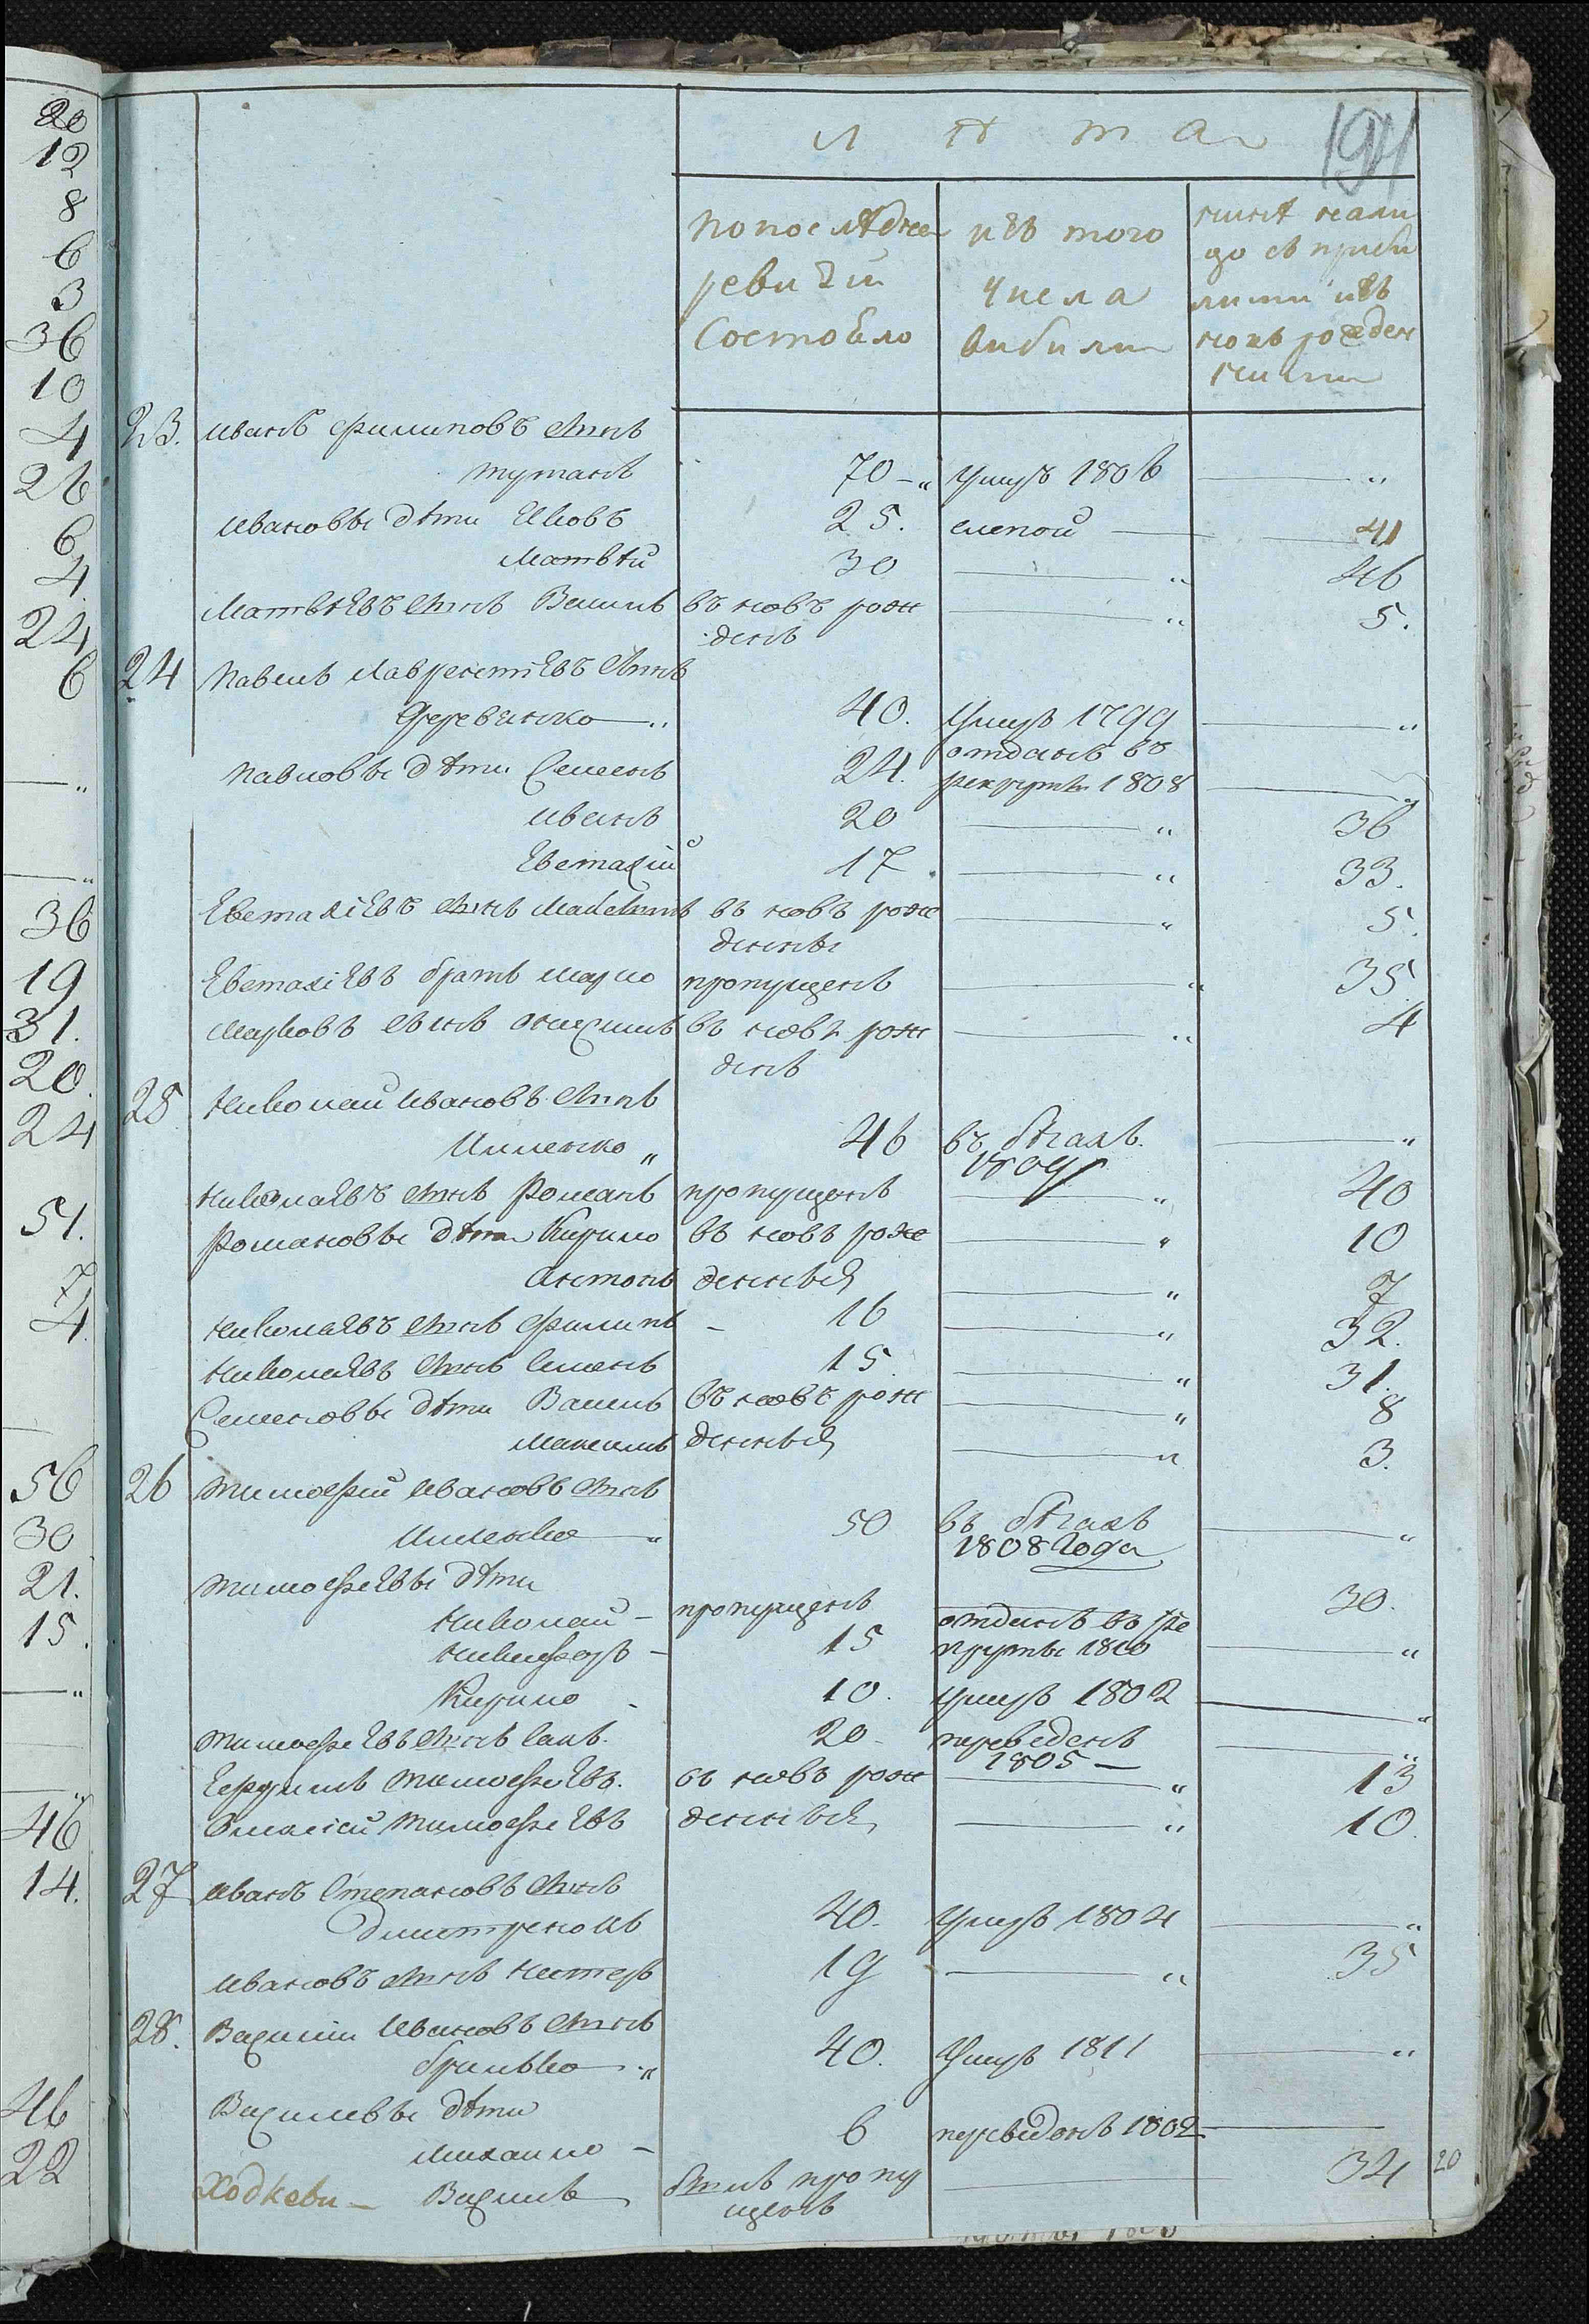 20
12
8
6
3
36
10
4
26
6
4
24
6
36
19
31.
20.
24
51.
7
4.
56
30
21.
15.
46
14.
46
22
лѣта
191
По последней
ревизіи
Состояло
изъ того
числа
выбыли
нинѣ нали
цо съ прибы
лими изъ
новь рожден
ними
23. Иванъ Филиповъ сынъ
70 умеръ 1806
Ивановы дѣти Яковъ 25. слепой 41
Матвѣй 30 46
Матвѣевъ сынъ въ новъ рож 5.
денъ
24 Павелъ Лаврентіевъ сынъ
40. умеръ 1799
Павловы дѣти Семенъ 24. отданъ въ
рекруты 1808
Иванъ 20 36
Евстахій 17 33.
Евстахіевъ сынъ въ новъ рож 5.
денны
Евстахіевъ братъ Марко пропущенъ 35
Марковъ сынъ въ новъ рож 4
денъ
25 Николай Ивановъ сынъ
46 въ бѣгахъ
1809
Николаевъ сынъ Романъ пропущенъ 40
Романовы дѣти Кирило въ новъ рож 10
Антонъ денныя 7
Николаевъ сынъ Филипъ 16 32.
Николаевъ сынъ Семенъ 15 31.
Семеновы дѣти въ новъ рож 8
Максимъ денныя 3.
26 Тимофій Ивановъ сынъ
50 въ бѣгахъ
1808 года
Тимофеевы дѣти
Николай пропущенъ 30.
Никифоръ 15 отданъ въ ре
круты 1810
Кирило 10. умеръ 1802
Тимофеевъ сынъ 20 переведенъ
1805
Тимофеевъ. въ новъ рож 13
Тимофеевъ денныя 10
27 Иванъ Степановъ сынъ
40. умеръ 1804
Ивановъ сынъ Нестеръ 19 35
28. Василій Ивановъ сынъ
40. умеръ 1811
Василевы дѣти
Михайло 6 переведенъ 1802
Ходкеви Василь былъ пропу 34 20
щенъ